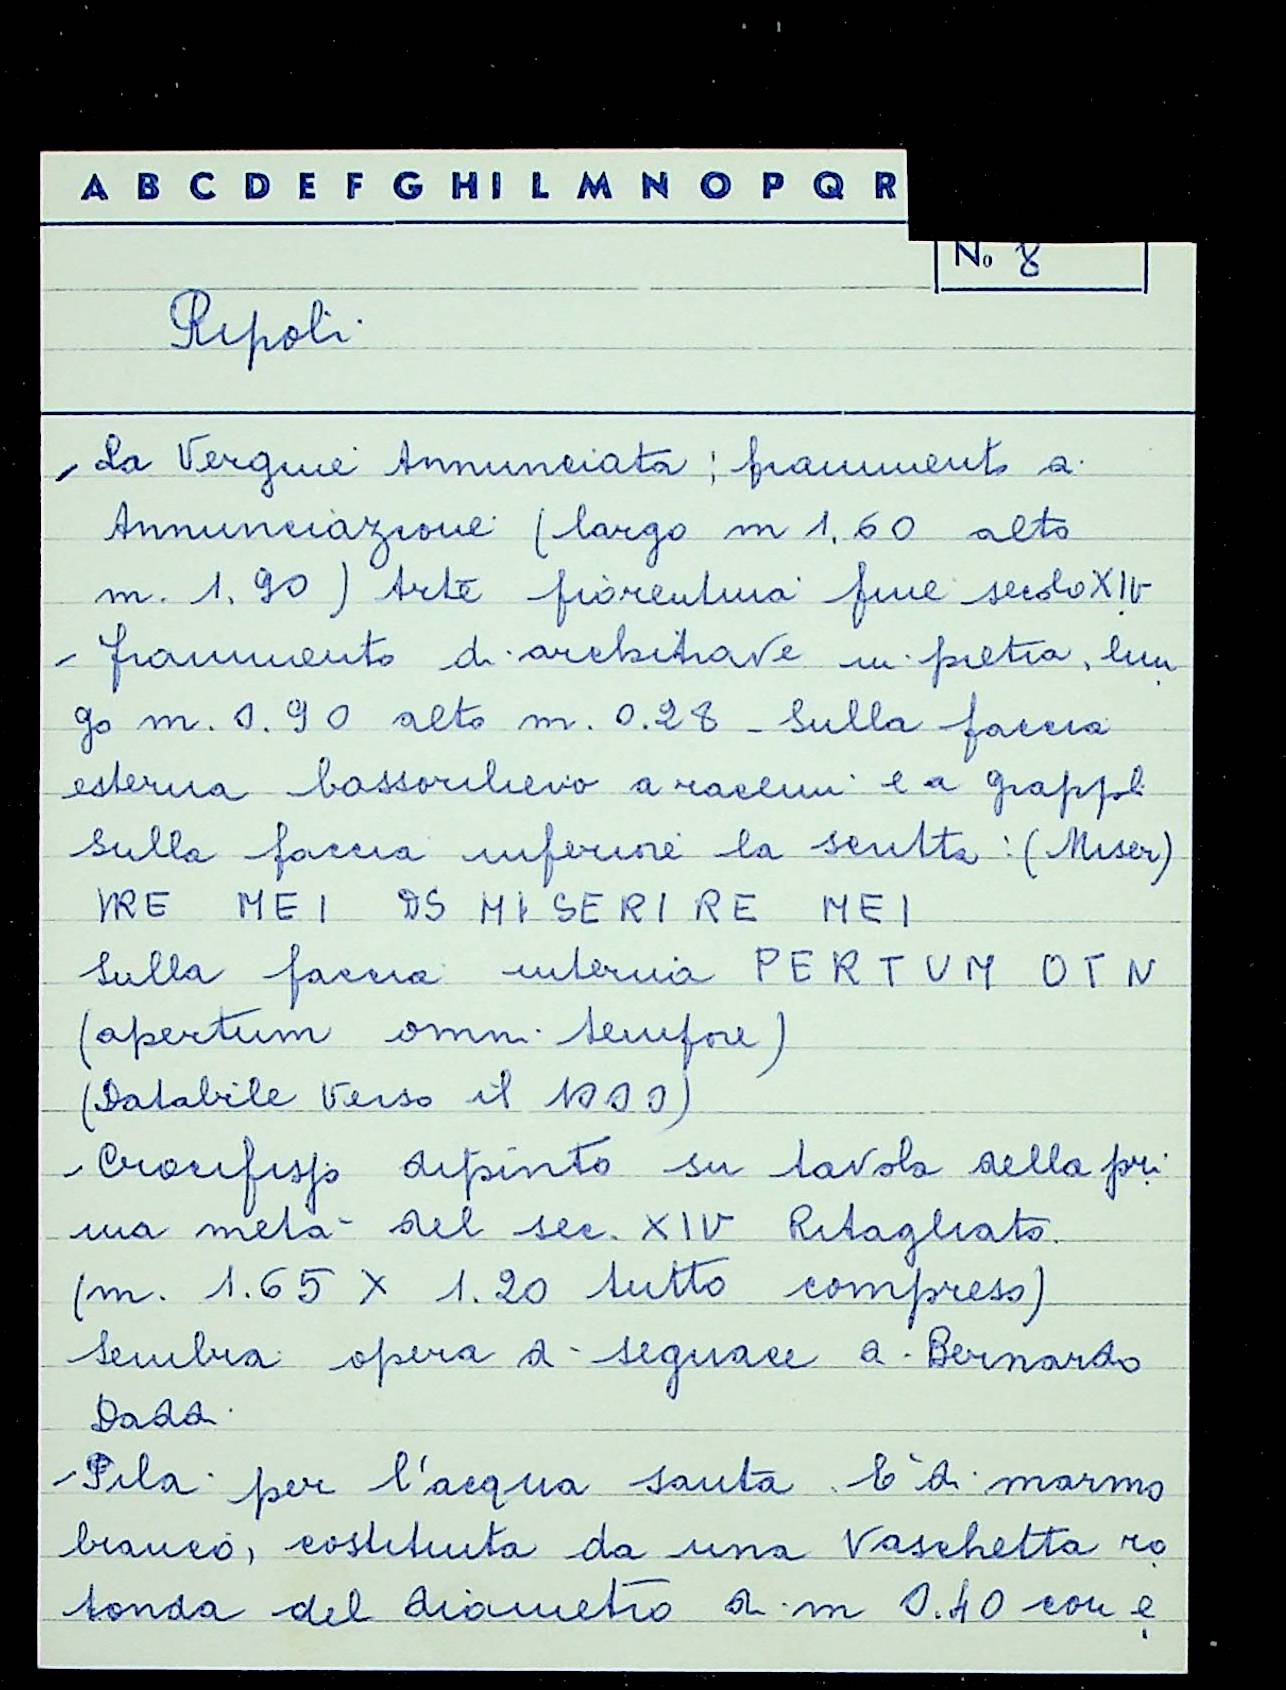 A B C D E F G H I L M N O P Q R
No 8
Ripoli
- La Vergine Annunciata; frammento di
Annunciazione (largo m 1,60 alto
m. 1,90) Arte fiorentina fine secolo XIV
- frammento di architrave in pietra, lun
go m. 0.90 alto m. 0.28 - Sulla faccia
esterna bassorilievo a racemi e a grappoli
Sulla faccia inferiore la scritta: (Miser)
IRE MEI DS MISERIRE MEI
Sulla faccia interna PERTUM OTN
(apertum omni tempore)
(Databile verso il 1000)
- Crocifisso dipinto su tavola della pri
ma metà del sec. XIV Ritagliato.
(m. 1.65 X 1.20 tutto compreso)
Sembra opera di seguace di Bernardo
Daddi
- Pila per l'acqua santa. E' di marmo
bianco, costituita da una vaschetta ro
tonda del diametro di m 0.40 con e